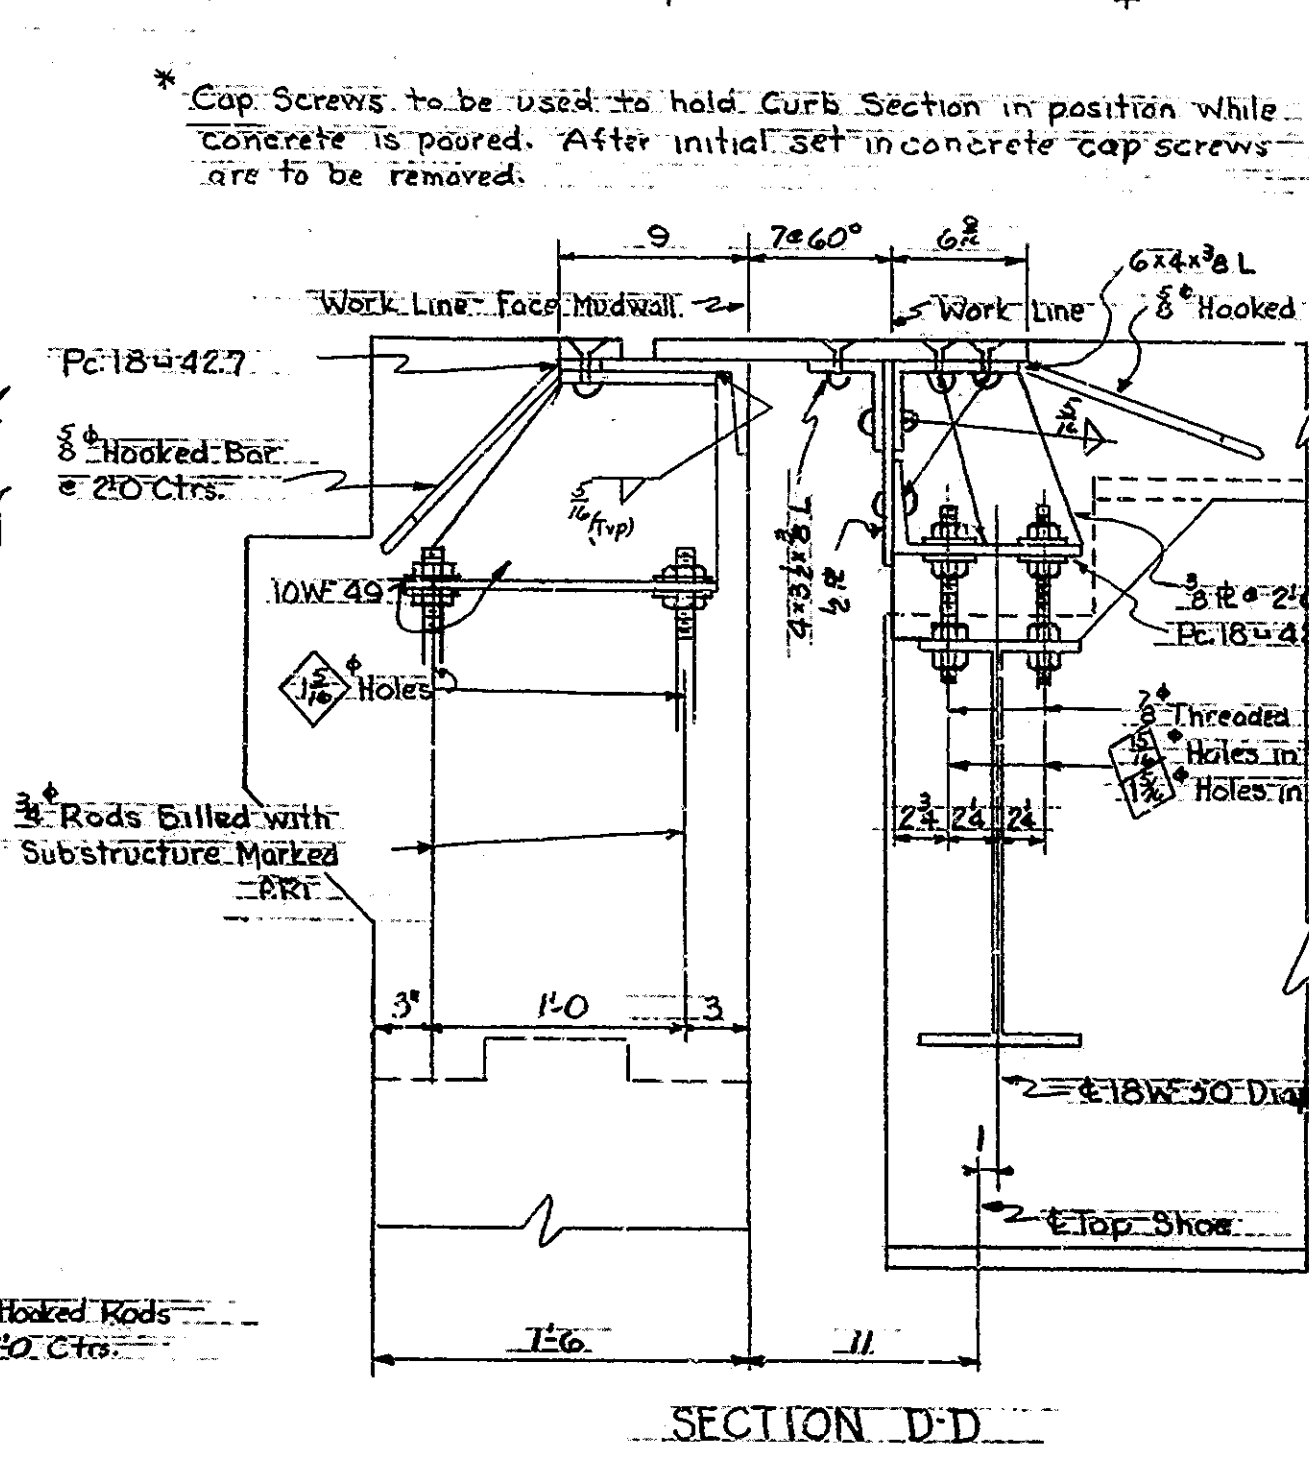 * Cap Screws to be used to hold Curb Section in position while
concrete is poured. After initial set in concrete cap screws
are to be removed.
9
7@60°
6
6x4x3/8 L
5/8 φ Hooked
Work Line - Face Mudwall
Work Line
Pc. 18 ⊔ 42.7
5/8 φ Hooked Bar
@ 2'-0 Ctrs.
5/16
5/16 (Typ)
4x3 1/2x3/8 L
1/2 PL
10 WF 49
3/8 PL @ 2'-
Pc. 18 ⊔ 4
1 5/16 φ Holes
7/8 φ Threaded
15/16 φ Holes in
1 5/16 φ Holes in
2 3/4 2 1/4 2 1/4
3/4 φ Rods Billed with
Substructure Marked
3" 1'-0 3
℄ 18 WF 50 Diap
1
℄ Top Shoe
Hooked Rods
'-0 Ctrs.
1'-6
11
SECTION D-D